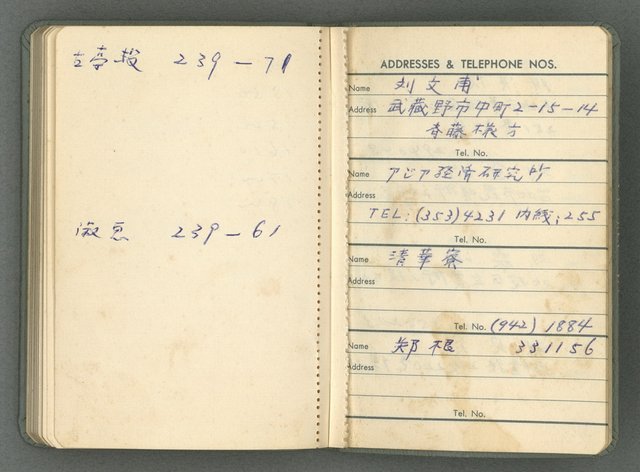 239-71
淑惠 239-61
ADDRESSES & TELEPHONE NOS.
Name 刘文甫
Address 武蔵野市中町2-15-14
斉藤様方
Tel. No.
Name アジア経済研究所
Address
TEL:(353)4231 内綫:255
Tel. No.
Name 清華寮
Address
Tel. No. (942) 1884
Name 郑根 331156
Address
Tel. No.